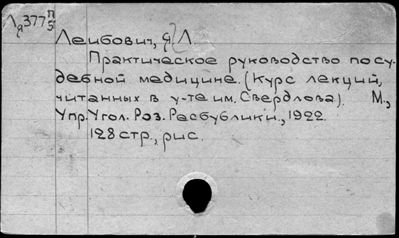 Л 377 П/5
Лейбович, Я Л.
Практическое руководство по су-
дебной медицине. (Курс лекций,
читанных в у-те им. Свердлова). М.,
Упр. Угол. Роз. Расбублики, 1922.
128 стр., рис.